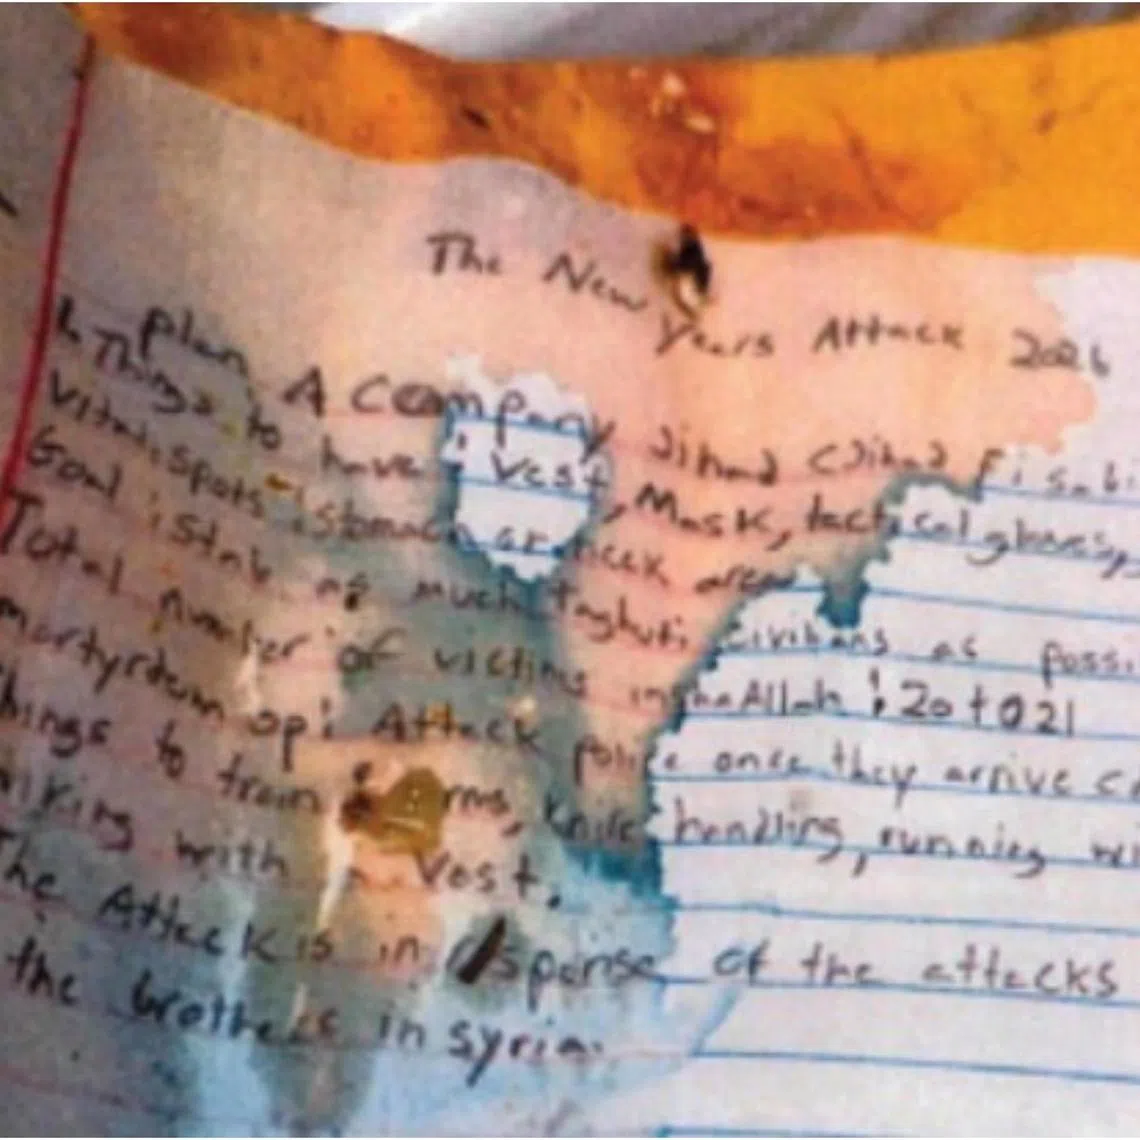 The New Years Attack 2026
plan A Company Jihad (Jihad fi sabi
Things to have : vest, Mask, tactical gloves,
Vital spots : stomach or neck area
Goal : Stab as much taghuti civilians as possi
Total number of victims inshaAllah : 20 to 21
martyrdom op : Attack police once they arrive
hings to train : rms, knife handling, running wi
iking with vest.
The Attack is in sponse of the attacks
the brothers in syria.